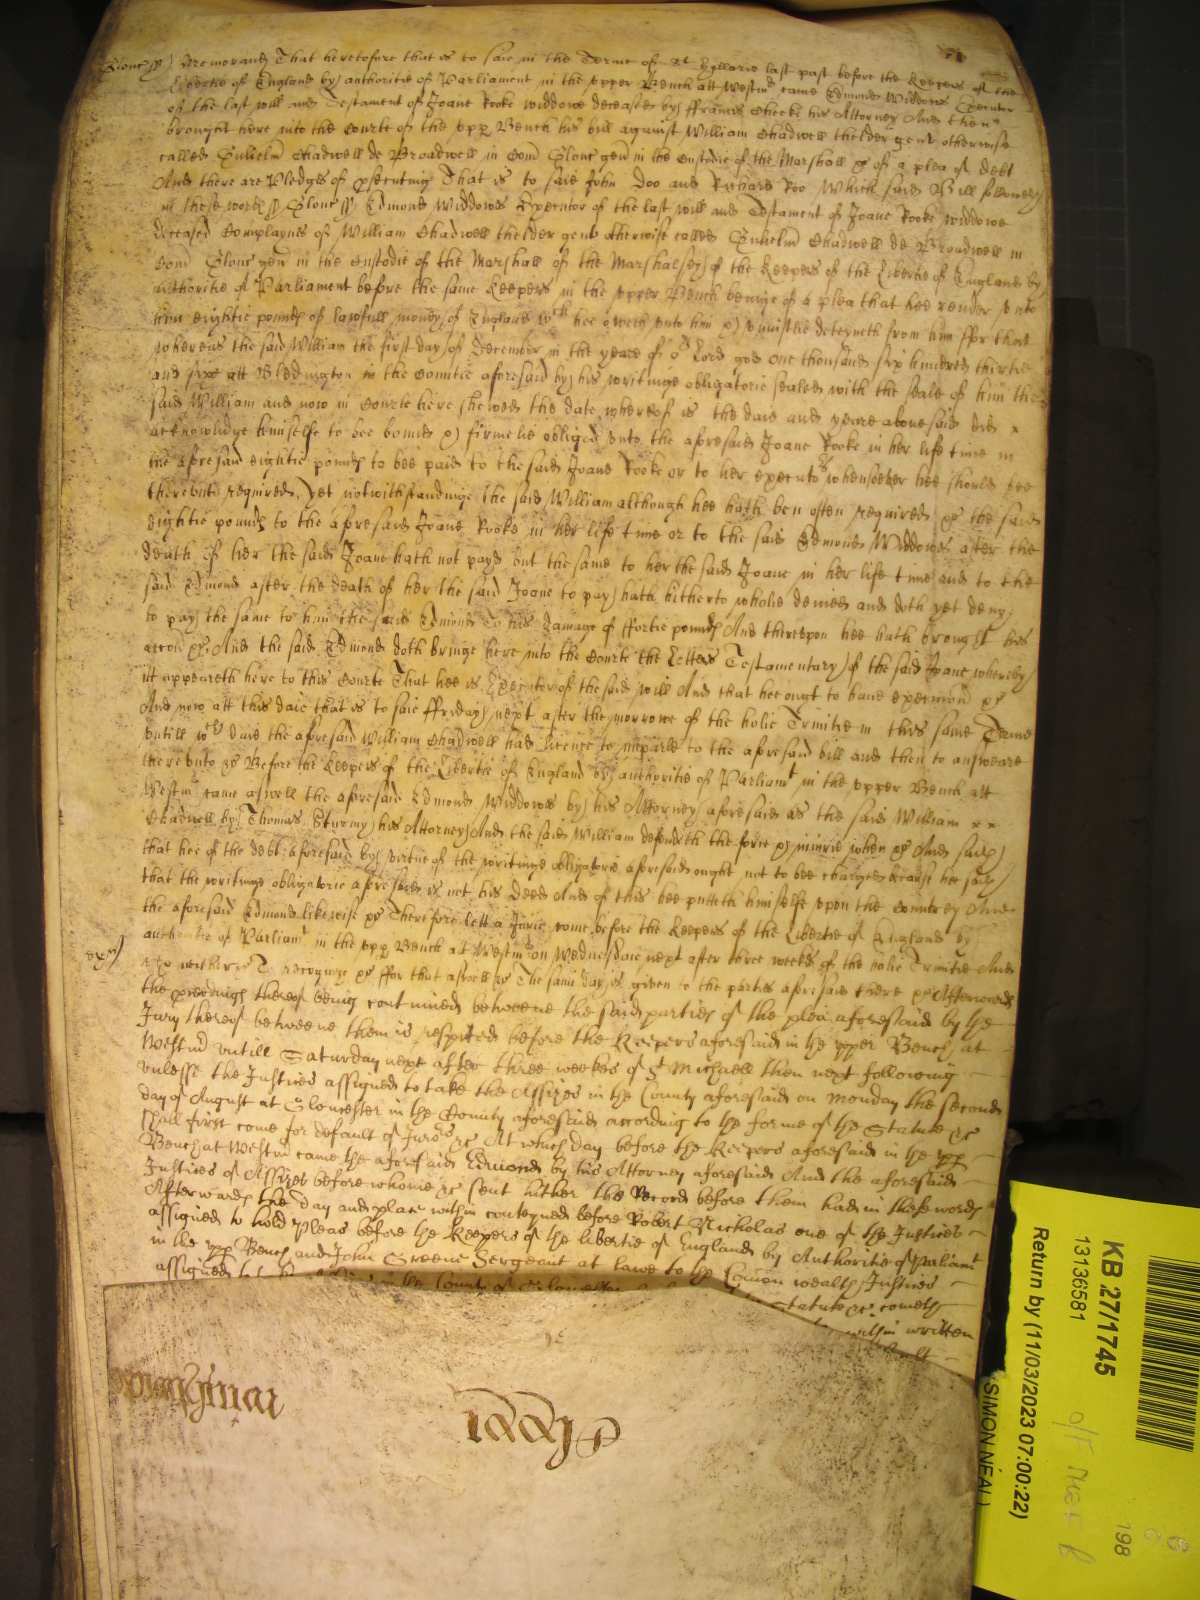 Glouc ss Memorand That heretofore that is to saie in the Terme of St Hyllarie last past before the Keepers of the
Libertie of England by authoritie of Parliament in the upper Bench att Westmr came Edmond Widdows Executor
of the last will and Testament of Joane Rooke widdowe deceased by ffrancis Cheeke his Attorney And then
brought here into the Courte of the upp Bench his bill against William Chadwell thelder gent otherwise
called Gulielm Chadwell de Broadwell in Com Glouc gen in the Custodie of the Marshall &c of a plea of debt
And there are Pledges of psecuting That is to saie John Doo and Richard Roo Which said Bill followeth
in these words ss Glouc ss Edmond Widdows Executor of the last will and Testament of Joane Rooke widdowe
deceased Complaynes of William Chadwell thelder gent otherwise called Gulielm Chadwell de Broadwell in
Com Glouc gen in the Custodie of the Marshall of the Marshalsey of the Keepers of the Libertie of England by
authoritie of Parliament before the same Keepers in the upper Bench beinge of a plea that hee render unto
him eightie pounds of lawfull money of England wch hee oweth unto him & uniustlie deteyneth from him ffor that
whereas the said William the first day of December in the yeare of or Lord god one thousand six hundred thirtie
and sixe att Bledington in the Countie aforesaid by his writinge obligatorie sealed with the seale of him the
said William and now in Courte here shewed the date whereof is the daie and yeare abovesaid did
acknowledge himselfe to bee bound & firmelie obliged unto the aforesaid Joane Rooke in her life time in
the aforesaid eightie pounds to bee paid to the said Joane Rooke or to her executors whensoever hee should bee
thereunto required Yet notwithstandinge the said William although hee hath ben often required &c the said
eightie pounds to the aforesaid Joane Rooke in her life time or to the said Edmond Widdows after the
death of her the said Joane hath not payd but the same to her the said Joane in her life time and to the
said Edmond after the death of her the said Joane to pay hath hitherto wholie denied and doth yet deny
to pay the same to him the said Edmond To his damage of ffortie pounds And thereupon hee hath brought his
accon &c And the said Edmond doth bringe here into the Courte the Letters Testamentary of the said Joane whereby
itt appeareth here to this Courte That hee is Executor of the said will And that hee ought to have execucion &c
And now att this daie that is to saie ffriday next after the morrowe of the holie Trinitie in this same Terme
untill wch daie the aforesaid William Chadwell had licence to imparle to the aforesaid bill and then to answeare
thereunto &c Before the Keepers of the Libertie of England by authoritie of Parliamt in the upper Bench att
Westmr came aswell the aforesaid Edmond Widdows by his Attorney aforesaid as the said William
Chadwell by Thomas Sturmy his Attorney And the said William defendeth the force & iniurie when &c And saith
that hee of the debt aforesaid by virtue of the writinge obligatorie aforesaid ought not to bee charged because hee saith
that the writinge obligatorie aforesaid is not his deed And of this hee putteth himselfe upon the Countrey And
the aforesaid Edmond likewise &c Therefore lett a Jurie come before the Keepers of the Libertie of England by
authoritie of Parliamt in the upp Bench at Westmr on Wednesdaie next after three weekes of the holie Trinitie And
who neither &c To recognize &c ffor that aswell &c The same day is given to the parties aforesaid there &c Afterwards
the proceedings thereof being continued betweene the said parties of the plea aforesaid by the
Jury thereof betweene them is respited before the Keepers aforesaid in the upper Bench at
Westmr untill Saturday next after three weekes of St Michaell then next following
unlesse the Justices assigned to take the Assizes in the County aforesaid on Monday the second
day of August at Gloucester in the County aforesaid according to the forme of the Statute &c
shall first come for default of Jurors &c At which day before the Keepers aforesaid in the upp
Bench at Westmr came the aforesaid Edmond by his Attorney aforesaid And the aforesaid
Justices of Assizes before whome &c sent hither the Record before them had in these words
Afterwards the day and place within conteyned before Robert Nicholas one of the Justices
assigned to hold pleas before the Keepers of the libertie of England by Authoritie of Parliamt
in the upp Bench and John Greene Sergeant at lawe to the Comon wealth Justices
assigned to the County of Gloucester Statute &c cometh
within written
KB 27/1745
13136581
Return by (11/03/2023 07:00:22)
SIMON NEAL)
198